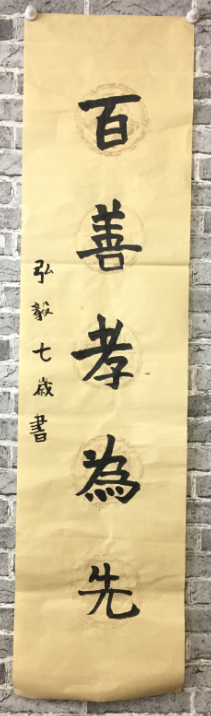 百善孝為先
弘毅七歲書